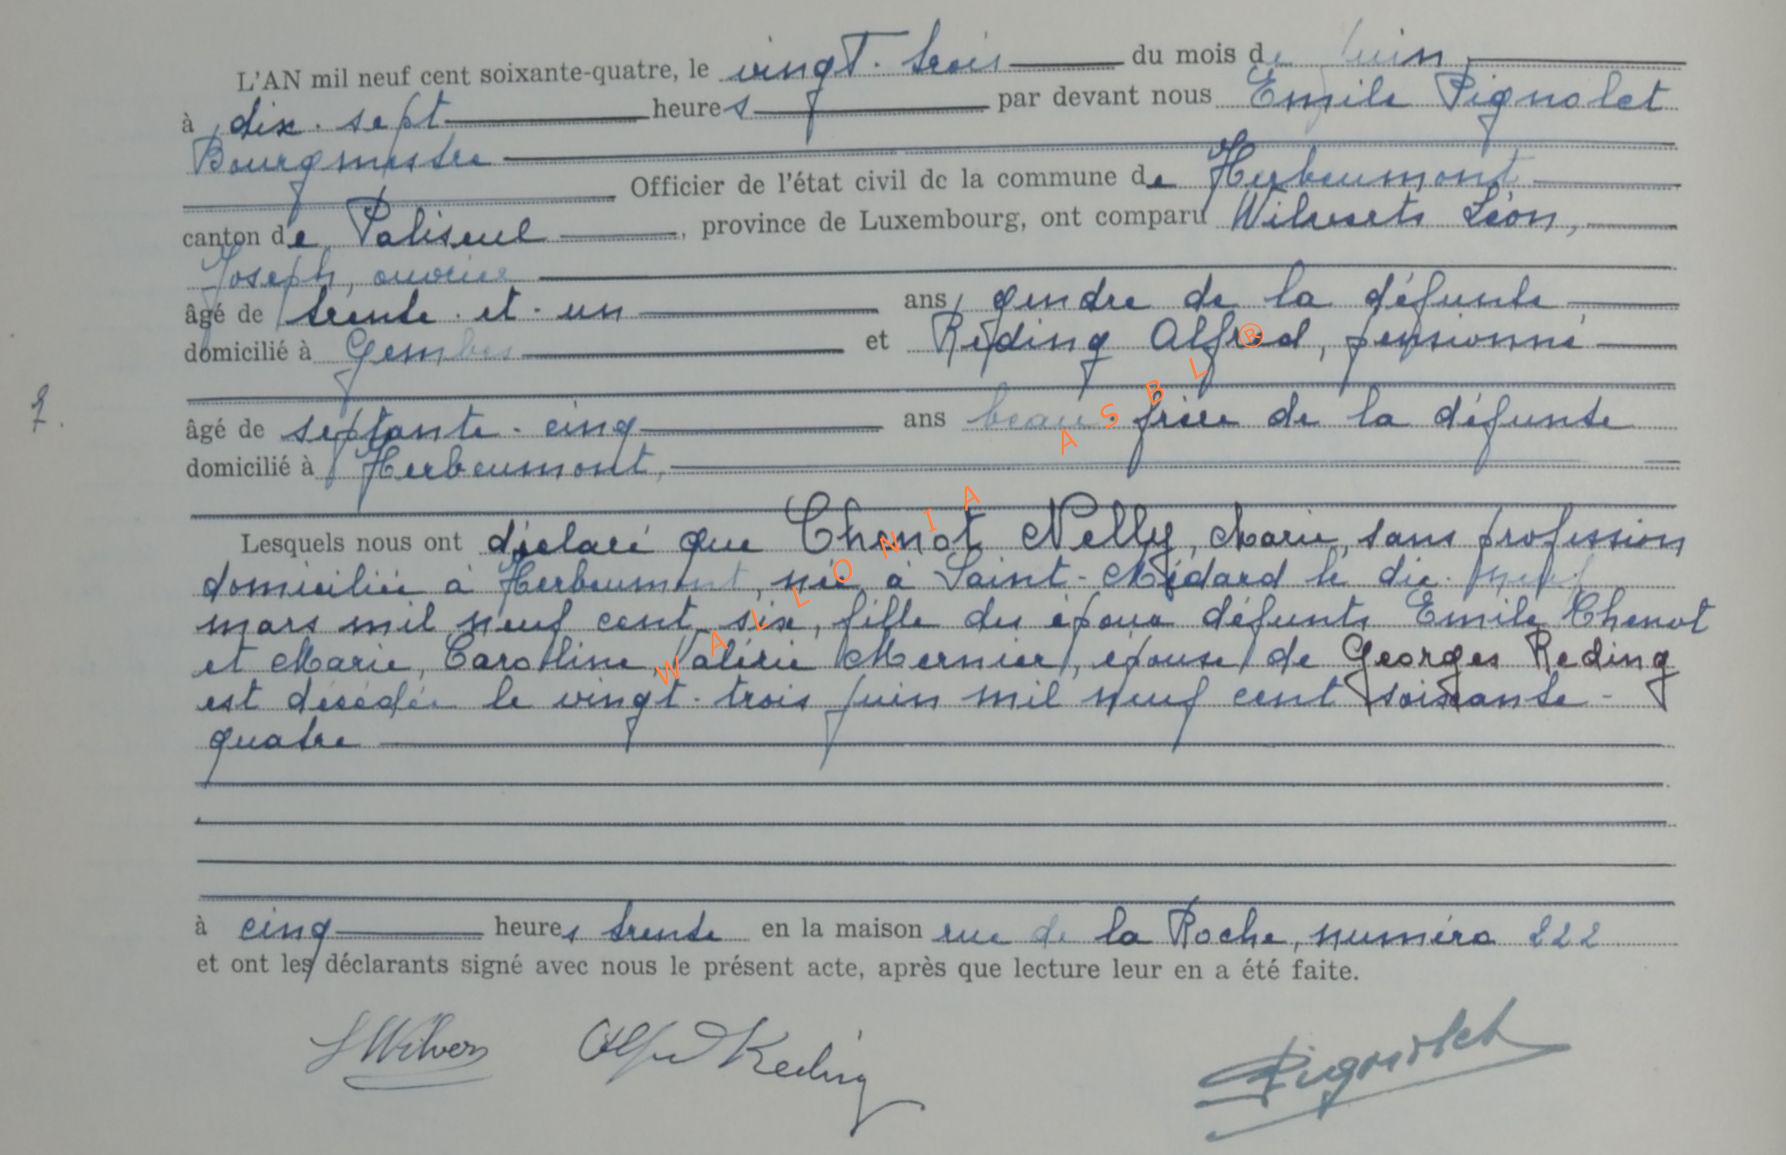 L'AN mil neuf cent soixante-quatre, le vingt-trois du mois de Juin
à dix-sept heures par devant nous Emile Pignolet
Bourgmestre
Officier de l'état civil de la commune de Herbeumont
canton de Paliseul, province de Luxembourg, ont comparu Léon,
Joseph, ouvrier
âgé de trente-et-un ans, gendre de la défunte
domicilié à Gembes et Reding Alfred, pensionné
7.
âgé de septante-cinq ans beau-frère de la défunte
domicilié à Herbeumont,
Lesquels nous ont déclaré que Chenot Nelly, Marie, sans profession
domiciliée à Herbeumont, née à Saint-Médard le dix-neuf
mars mil neuf cent six, fille des époux défunts Emile Chenot
et Marie, Caroline, Valérie Mernier, épouse de Georges Reding
est décédée le vingt-trois juin mil neuf cent soixante-
quatre
à cinq heures trente en la maison rue de la Roche, numéro 222
et ont les déclarants signé avec nous le présent acte, après que lecture leur en a été faite.
Alfred Reding Pignolet
WALLONIA ASBL ®